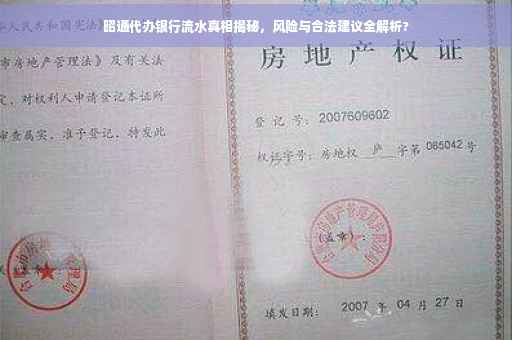 昭通代办银行流水真相揭秘，风险与合法建议全解析？
华人民共和国宪法》
市房地产管理法》及有关法
定，对权利人申请登记本证所
审查属实，准予登记，特发此
房地产权证
登记号：2007609602
权证字号：房地权 庐 字第 085042 号
（盖章）：
填发日期： 2007 年 04 月 27 日